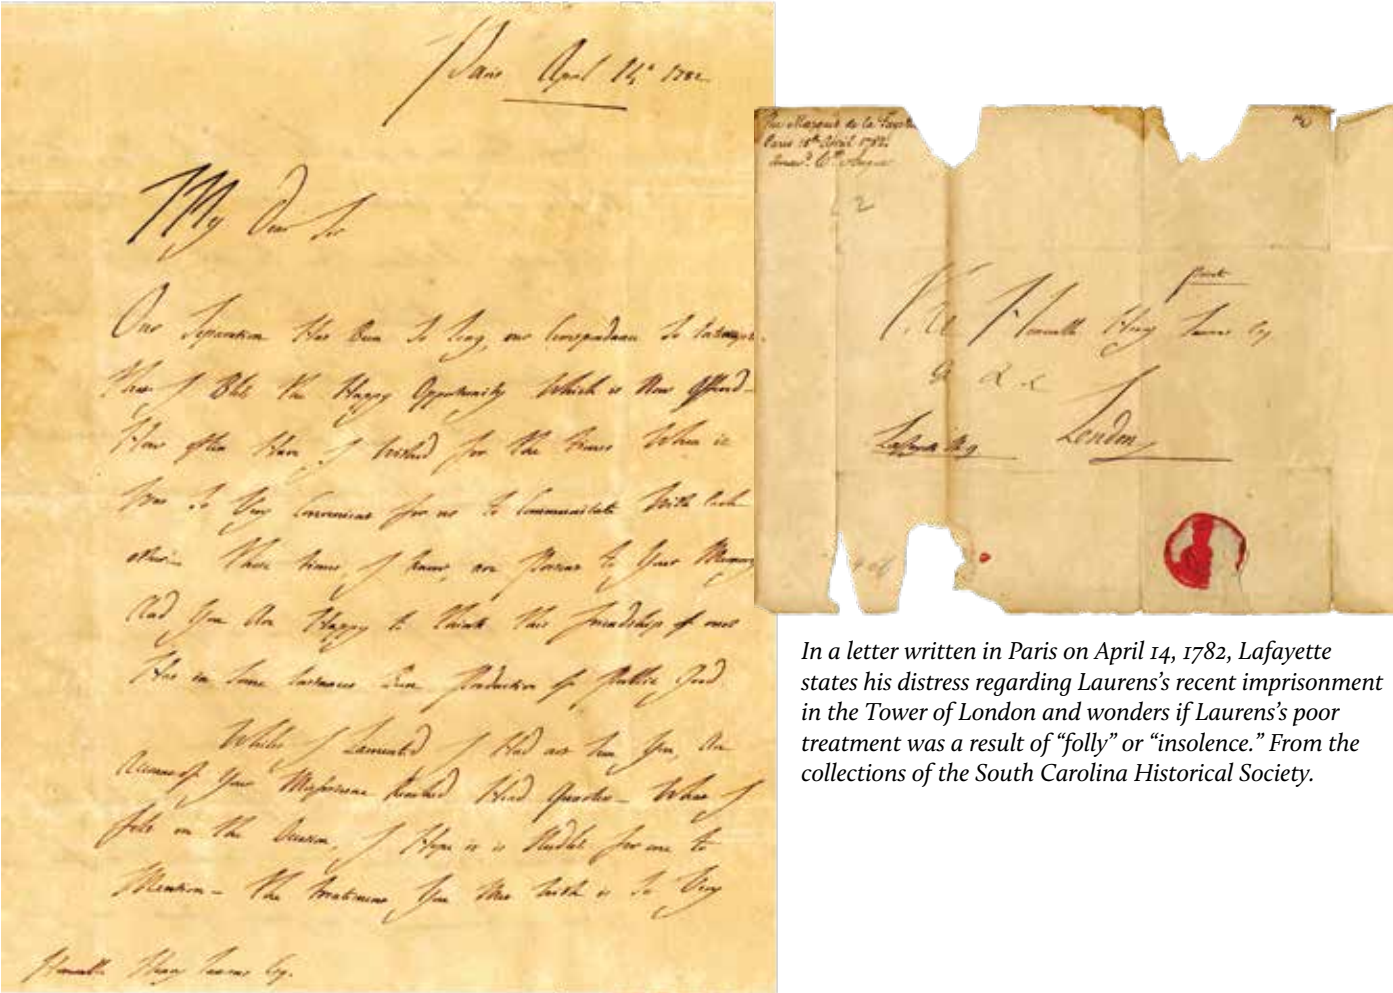 Paris April 14th 1782
My Dear Sir
Our Separation Has Been So long, our Correspondance So
That I Bless the Happy Opportunity Which is Now Offered—
How often Have I wished for the times When it
Was So Very Convenient for us to Communicate With Each
other— Those times, I know, are Present to Your Memory
And You Are Happy to think this friendship of ours
Has in Some instances Been Productive of Public Good
Whilst I Lamented I Had not Seen You, An
Account of Your Misfortune Reached Head Quarters— What I
felt on the Occasion, I Hope it is Needless for me to
Mention— the treatment You Met With is So Very
Honorable Henry Laurens Esq.
The Marquis de la Fayette
Paris April 1782
2
Honorable Henry Laurens Esq
London
In a letter written in Paris on April 14, 1782, Lafayette
states his distress regarding Laurens’s recent imprisonment
in the Tower of London and wonders if Laurens’s poor
treatment was a result of “folly” or “insolence.” From the
collections of the South Carolina Historical Society.